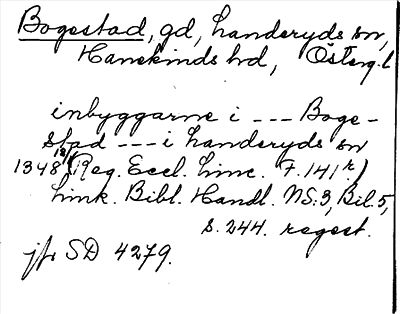 Bogestad, gd, Landeryds sn,
Hanekinds hd, Österg. l
inbyggarne i --- Boge-
stad --- i Landeryds sn
1348 18/1 (Reg. Eccl. Linc. F. 141 r)
Link. Bibl. Handl. NS: 3, Bil. 5,
s. 244. regest.
jfr SD 4279.